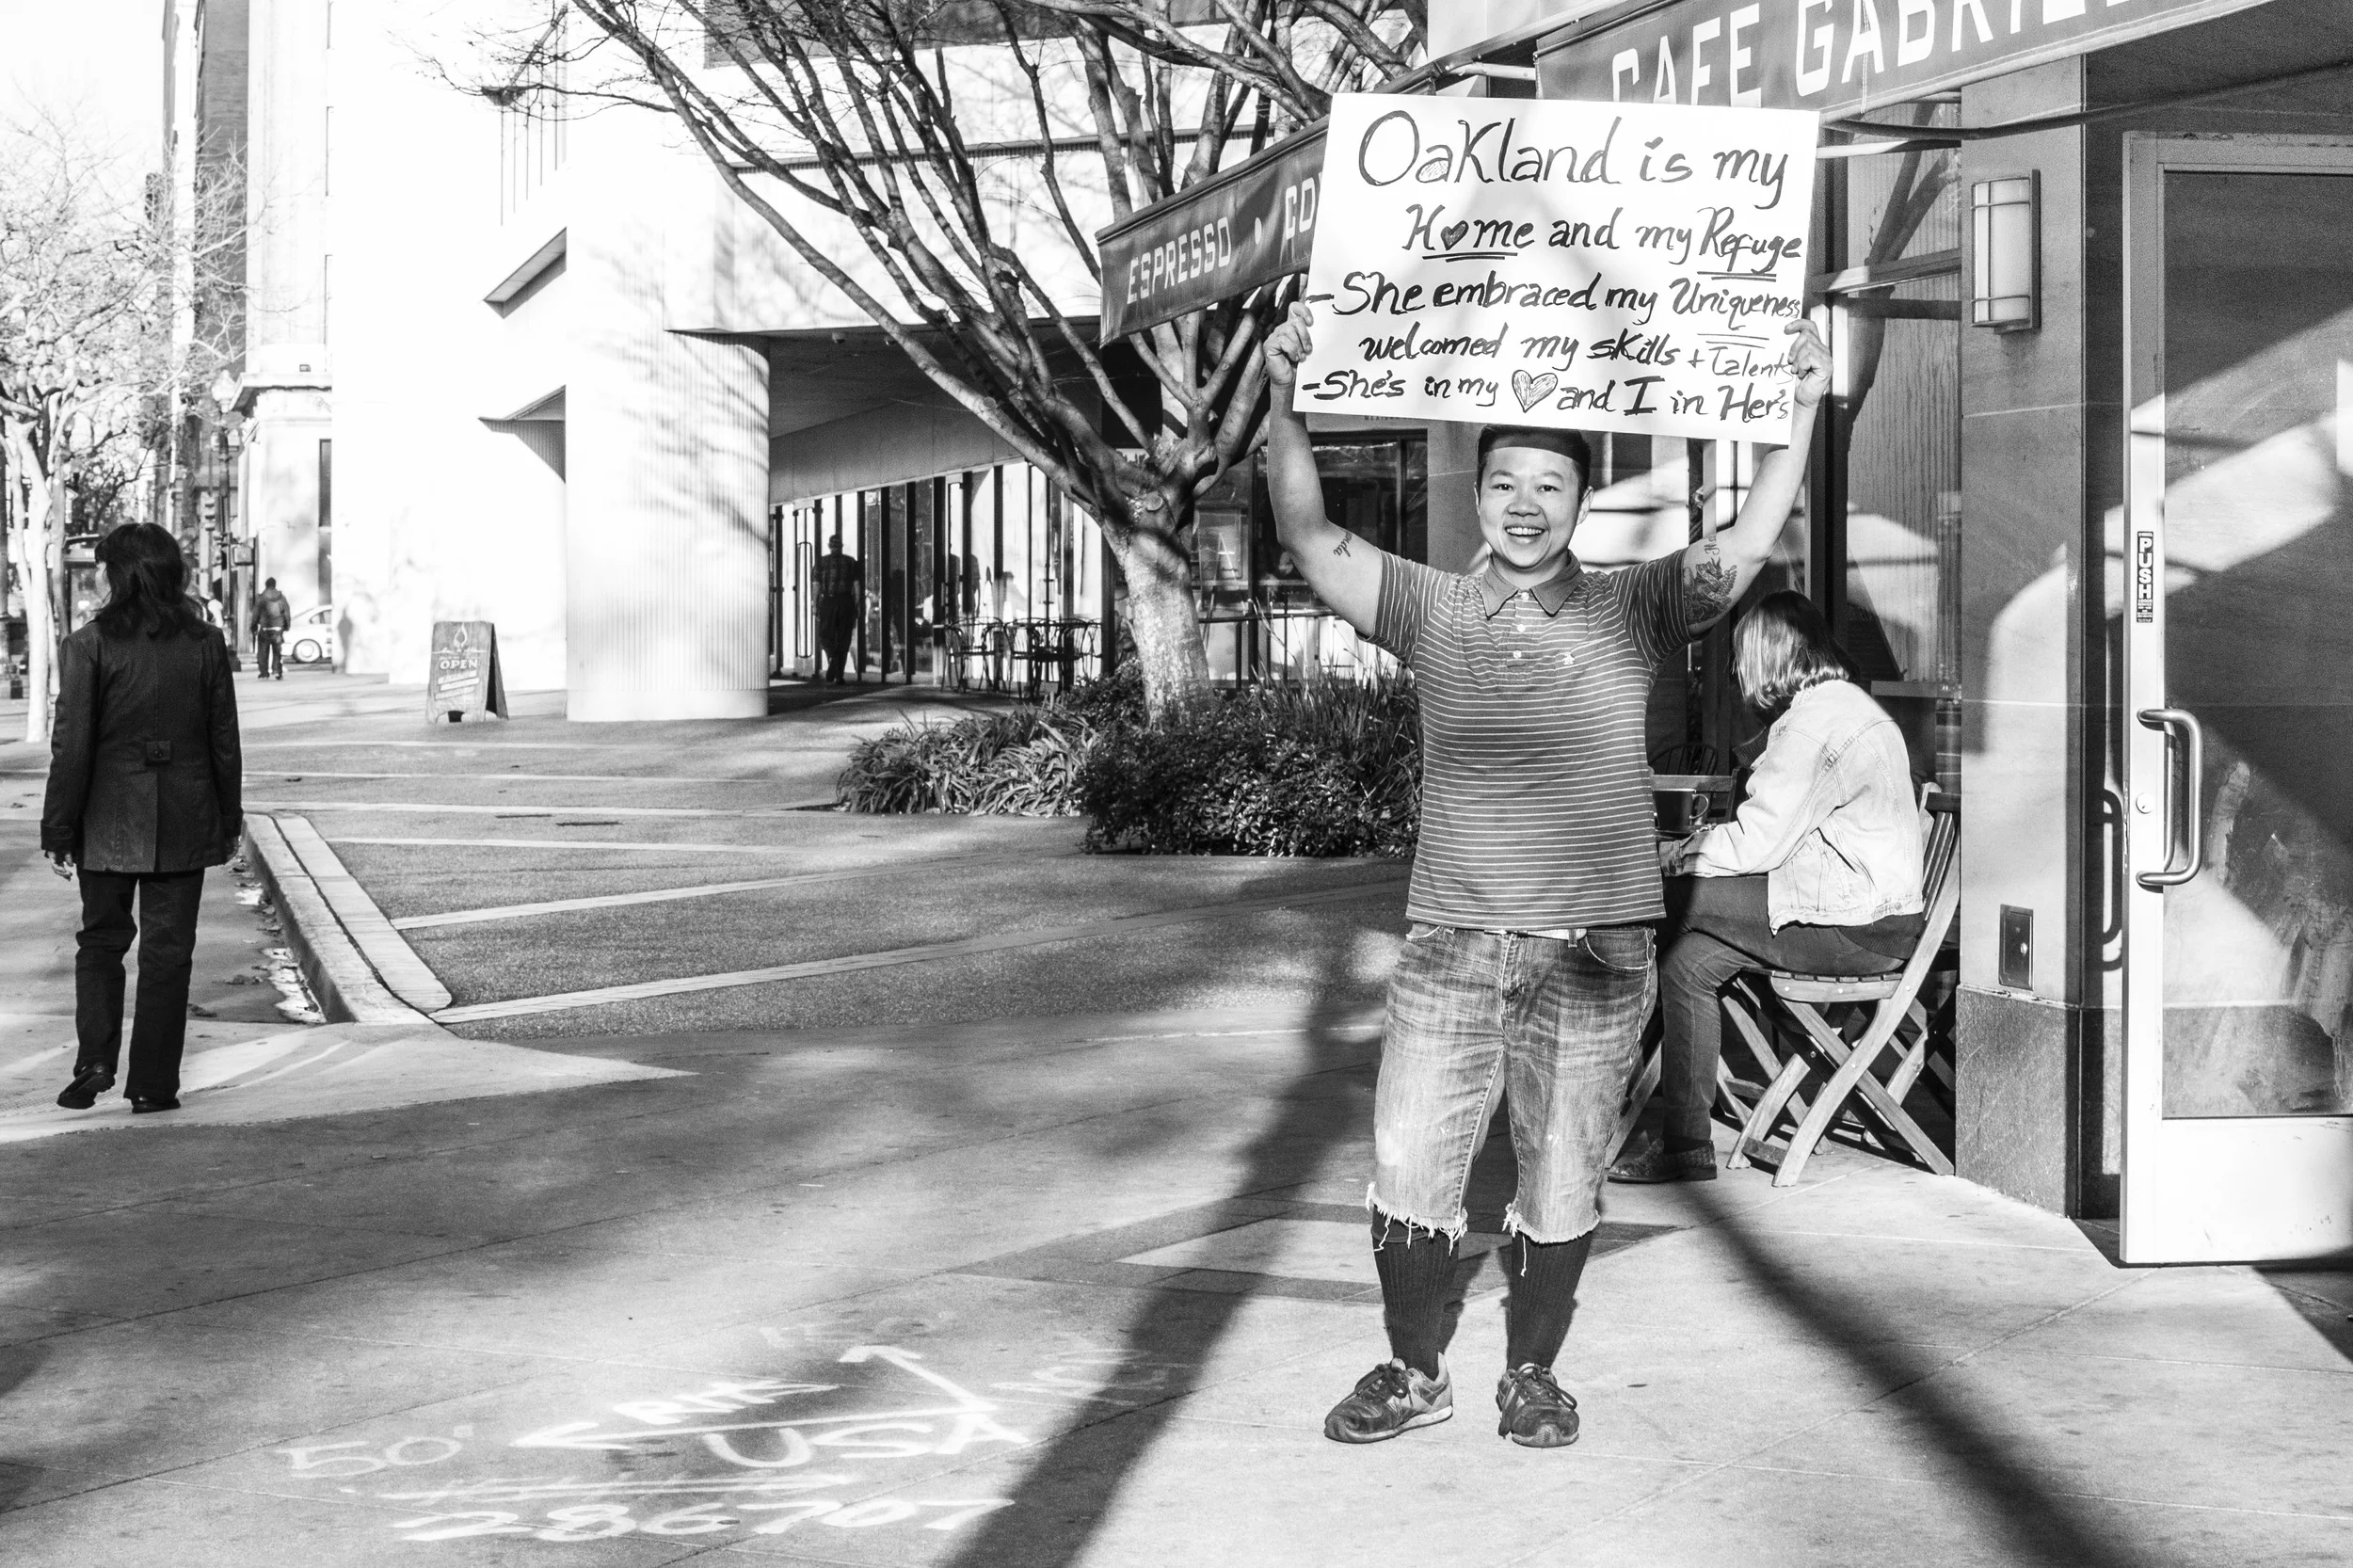 CAFE GABRIEL
ESPRESSO • CO
Oakland is my
H♥me and my Refuge
-She embraced my Uniqueness
welcomed my skills + Talents
-She's in my ♥ and I in Her's
OPEN
PUSH
50'
USA
286707